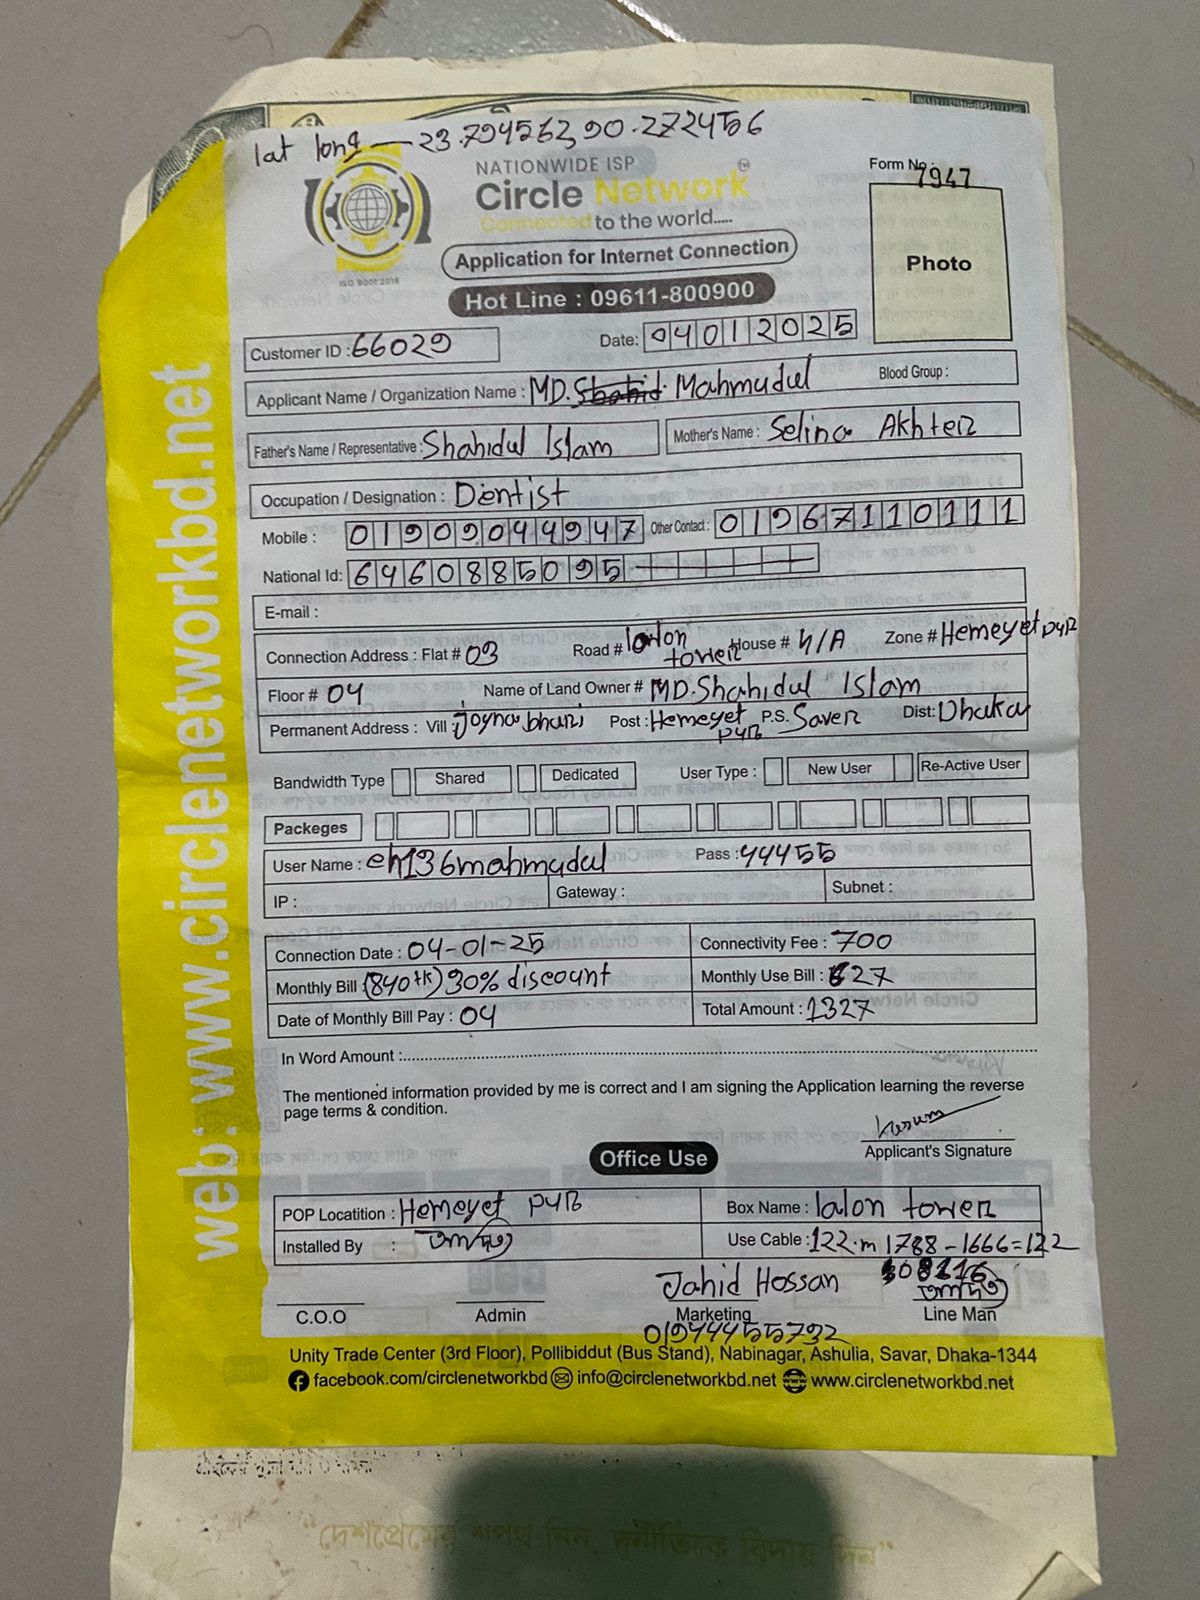 lat long — 23.794563,90.272456
NATIONWIDE ISP
Circle Network TM
Connected to the world.....
ISO 9001:2015
Application for Internet Connection
Hot Line : 09611-800900
Form No : 7947
Photo
Customer ID : 66029
Date: 04012025
Applicant Name / Organization Name : MD. Shahid Mahmudul Blood Group :
Father's Name / Representative : Shahidul Islam Mother's Name : Selina Akhter
Occupation / Designation : Dentist
Mobile : 01909044947 Other Contact : 01967110111
National Id: 6460885095
E-mail :
Connection Address : Flat # 03 Road # lalon tower House # N/A Zone # Hemeyet pur
Floor # 04 Name of Land Owner # MD. Shahidul Islam
Permanent Address : Vill : Joynabhari Post : Hemeyet pur P.S. Saver Dist: Dhaka
Bandwidth Type Shared Dedicated User Type : New User Re-Active User
Packeges
User Name : eh136mahmudul Pass : 44455
IP : Gateway : Subnet :
Connection Date : 04-01-25 Connectivity Fee : 700
Monthly Bill (840 tk) 30% discount Monthly Use Bill : 627
Date of Monthly Bill Pay : 04 Total Amount : 1327
In Word Amount :
The mentioned information provided by me is correct and I am signing the Application learning the reverse
page terms & condition.
Applicant's Signature
Office Use
POP Locatition : Hemeyet pur Box Name : lalon tower
Installed By : Use Cable : 122.m 1788-1666=122
Jahid Hossan
C.O.O Admin Marketing Line Man
01944455792
Unity Trade Center (3rd Floor), Pollibiddut (Bus Stand), Nabinagar, Ashulia, Savar, Dhaka-1344
facebook.com/circlenetworkbd info@circlenetworkbd.net www.circlenetworkbd.net
web: www.circlenetworkbd.net
"দেশপ্রেমের শপথ নিন, দুর্নীতিকে বিদায় দিন"